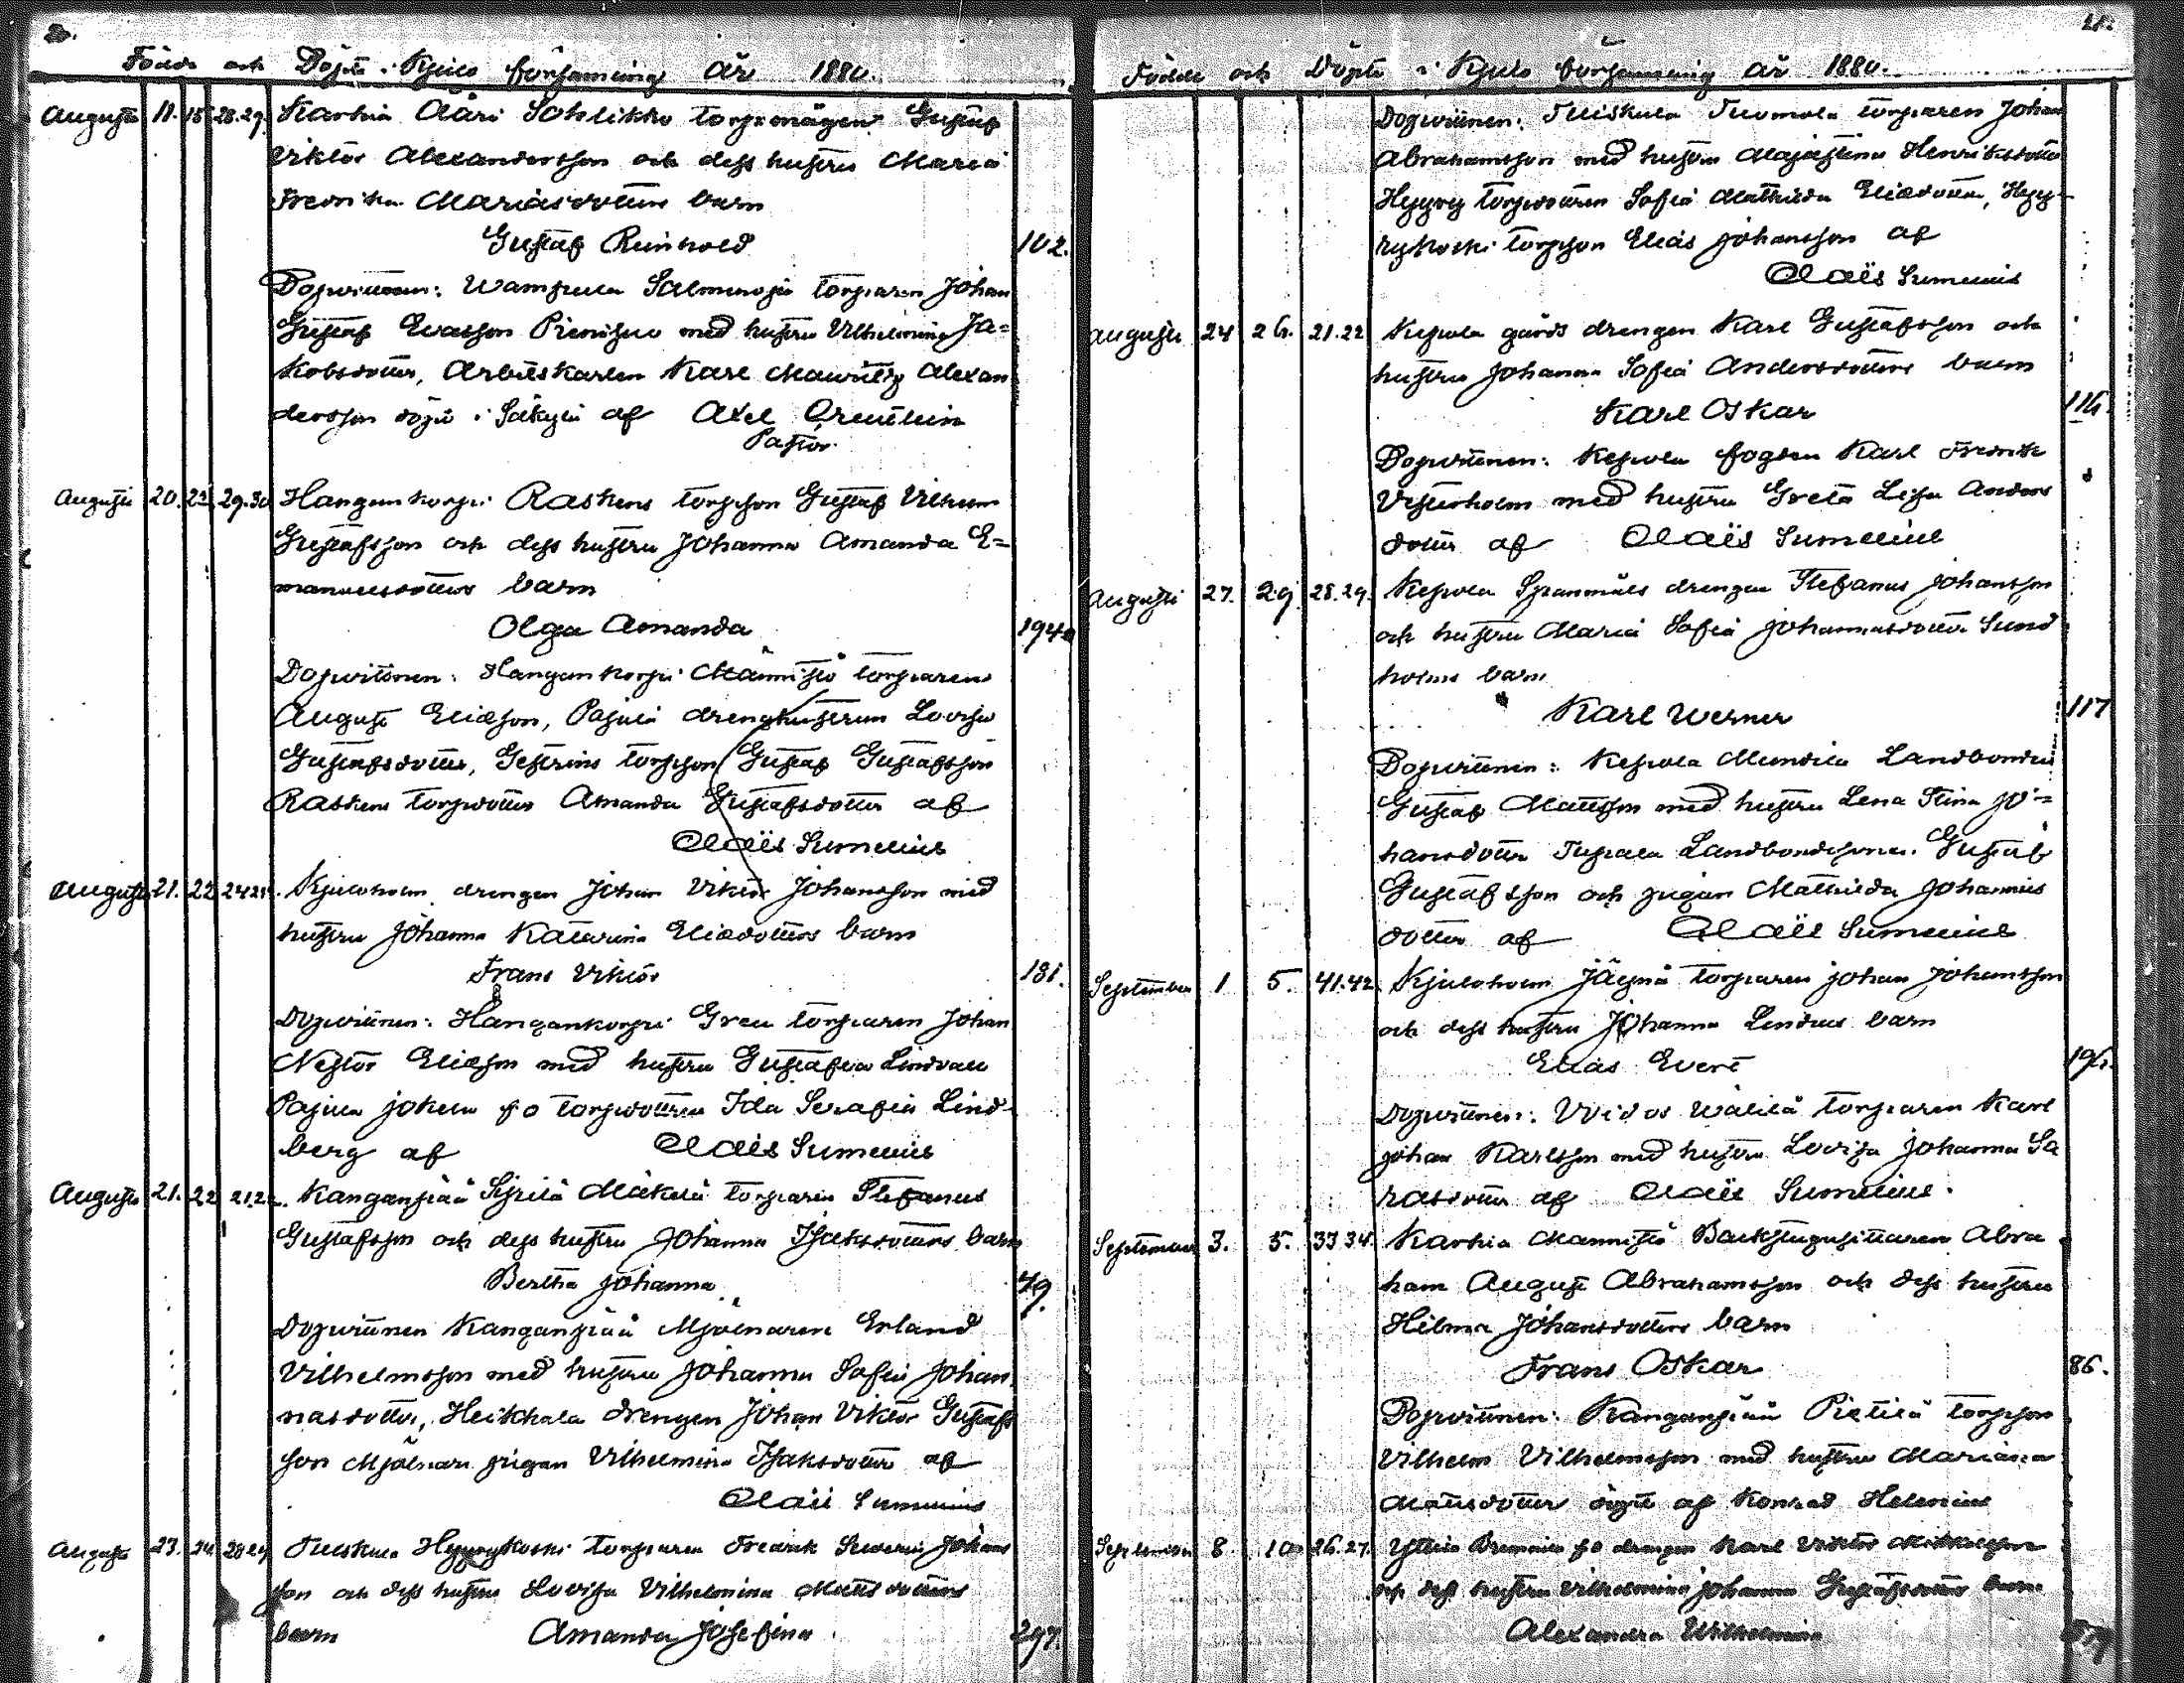 Födde och Döpte i Kjulo församling år 1880.
Augusti 11. 15 28.29. Karhia Ääri torpmågen Gustaf
Viktor Alexandersson och dess hustru Maria
Fredrika Mariasdotters barn
Gustaf Reinhold 102.
Dopvittnen: Wampula torparen Johan
Gustaf Evasson med hustru Vilhelmina Ja=
kobsdotter, Arbetskarlen Karl Mauritz Alexan
dersson döpt i Säkylä af Axel
Pastor.
Augusti 20. 22 29.30 Hangankorpi Raskens torpson Gustaf Vilhelm
Gustafsson och dess hustru Johanna Amanda E=
manuelsdotters barn
Olga Amanda 194
Dopvittnen: Hangankorpi Männistö torparen
August Eliasson, Pajula drenghustrun Lovisa
Gustafsdotter, torpson Gustaf Gustafsson
Raskens torpdotter Amanda Gustafsdotter af
Claës Sumelius
Augusti 21. 22 24.25. Kjuloholm drengen Johan Viktor Johansson med
hustru Johanna Katarina Eliedotters barn
Frans Viktor 181.
Dopvittnen: Hangankorpi torparen Johan
Nestor Eliasson med hustru Gustafva Lindvall
Pajula fo torpdottren Ida Serafia Lind
berg af Claës Sumelius
Augusti 21. 22 21.22. Kanganpää Sipilä Mäkelä torparen Stefanus
Gustafsson och dess hustru Johanna Isaksdotters barn
Bertha Johanna 49.
Dopvittnen Kanganpää Mjölnaren Erland
Vilhelmsson med hustru Johanna Sofia Johan
nasdotter, Heikkala drengen Johan Viktor Gustafs
son Mjölnare pigan Vilhelmina Isaksdotter af
Claës Sumelius
Augusti 23. 24 28.29 Tuiskula Hyyrynkoski torparen Fredrik Johans
son och dess hustru Lovisa Vilhelmina Mattsdotters
barn Amanda Josefina 297.
Födde och Döpte i Kjulo församling år 1880.
Dopvittnen: Tuiskula Tuomola torparen Johan
Abrahamsson med hustru Majastina Henriksdotter
Hyyry torpdottren Sofia Mathilda Eliedotter, Hyy-
rynkoski torpson Elias Johansson af
Claës Sumelius
Augusti 24 26. 21.22 Kepola gårds drengen Karl Gustafsson och
hustru Johanna Sofia Andersdotters barn
Karl Oskar 116.
Dopvittnen: Kepola fogden Karl Fredrik
Vesterholm med hustru Greta Lisa Anders
dotter af Claës Sumelius
Augusti 27. 29. 28.29. Kepola Spanmåls drengen Stefanus Johansson
och hustru Maria Sofia Johannasdotter Sund
holms barn
Karl Werner 117
Dopvittnen: Kepola Landbonden
Gustaf Mattsson med hustru Lena Stina Jo=
hansdotter Landbondesonen Gustaf
Gustafsson och pigan Mathilda Johannis
dotter af Claës Sumelius
September 1 5. 41.42. Kjuloholm Jäynä torparen Johan Johansson
och dess hustru Johanna Lendus barn
Elias Evert
Dopvittnen: torparen Karl
Johan Karlsson med hustru Lovisa Johanna Sa
rasdotter af Claës Sumelius.
September 3. 5. 33.34 Karhia Männistö Backstugusittaren Abra
ham August Abrahamsson och dess hustru
Hilma Johansdotters barn
Frans Oskar 86.
Dopvittnen: Kanganpää Pietilä torpson
Vilhelm Vilhelmsson med hustru Mariana
Mattsdotter döpt af Konrad Helenius
September 8. 10 26.27. fo drengen Karl Viktor
och dess hustru Vilhelmina Johanna Gustafsdotters barn
Alexandra Wilhelmina